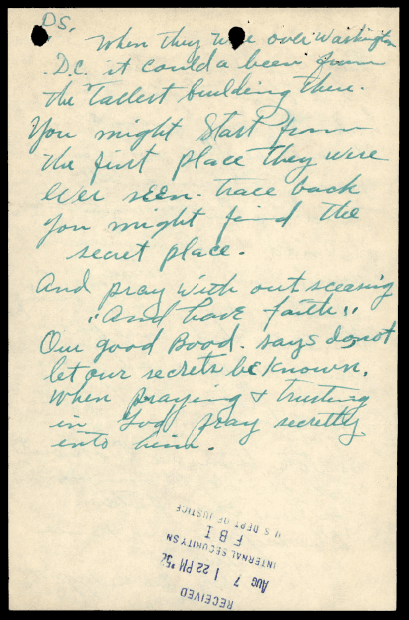 PS.
When they were over Washington
D.C. it could a been from
the Tallest building there.
You might Start from
the first place they were
ever seen. trace back
you might find the
secret place.
And pray with out sceasing
"And have faith"
Our good Bood. says do not
let our secrets be known.
When praying & trusting
in God pray secretly
into him.
RECEIVED
AUG 7 1 22 PM '52
INTERNAL SECURITY SN
F B I
U.S. DEPT OF JUSTICE